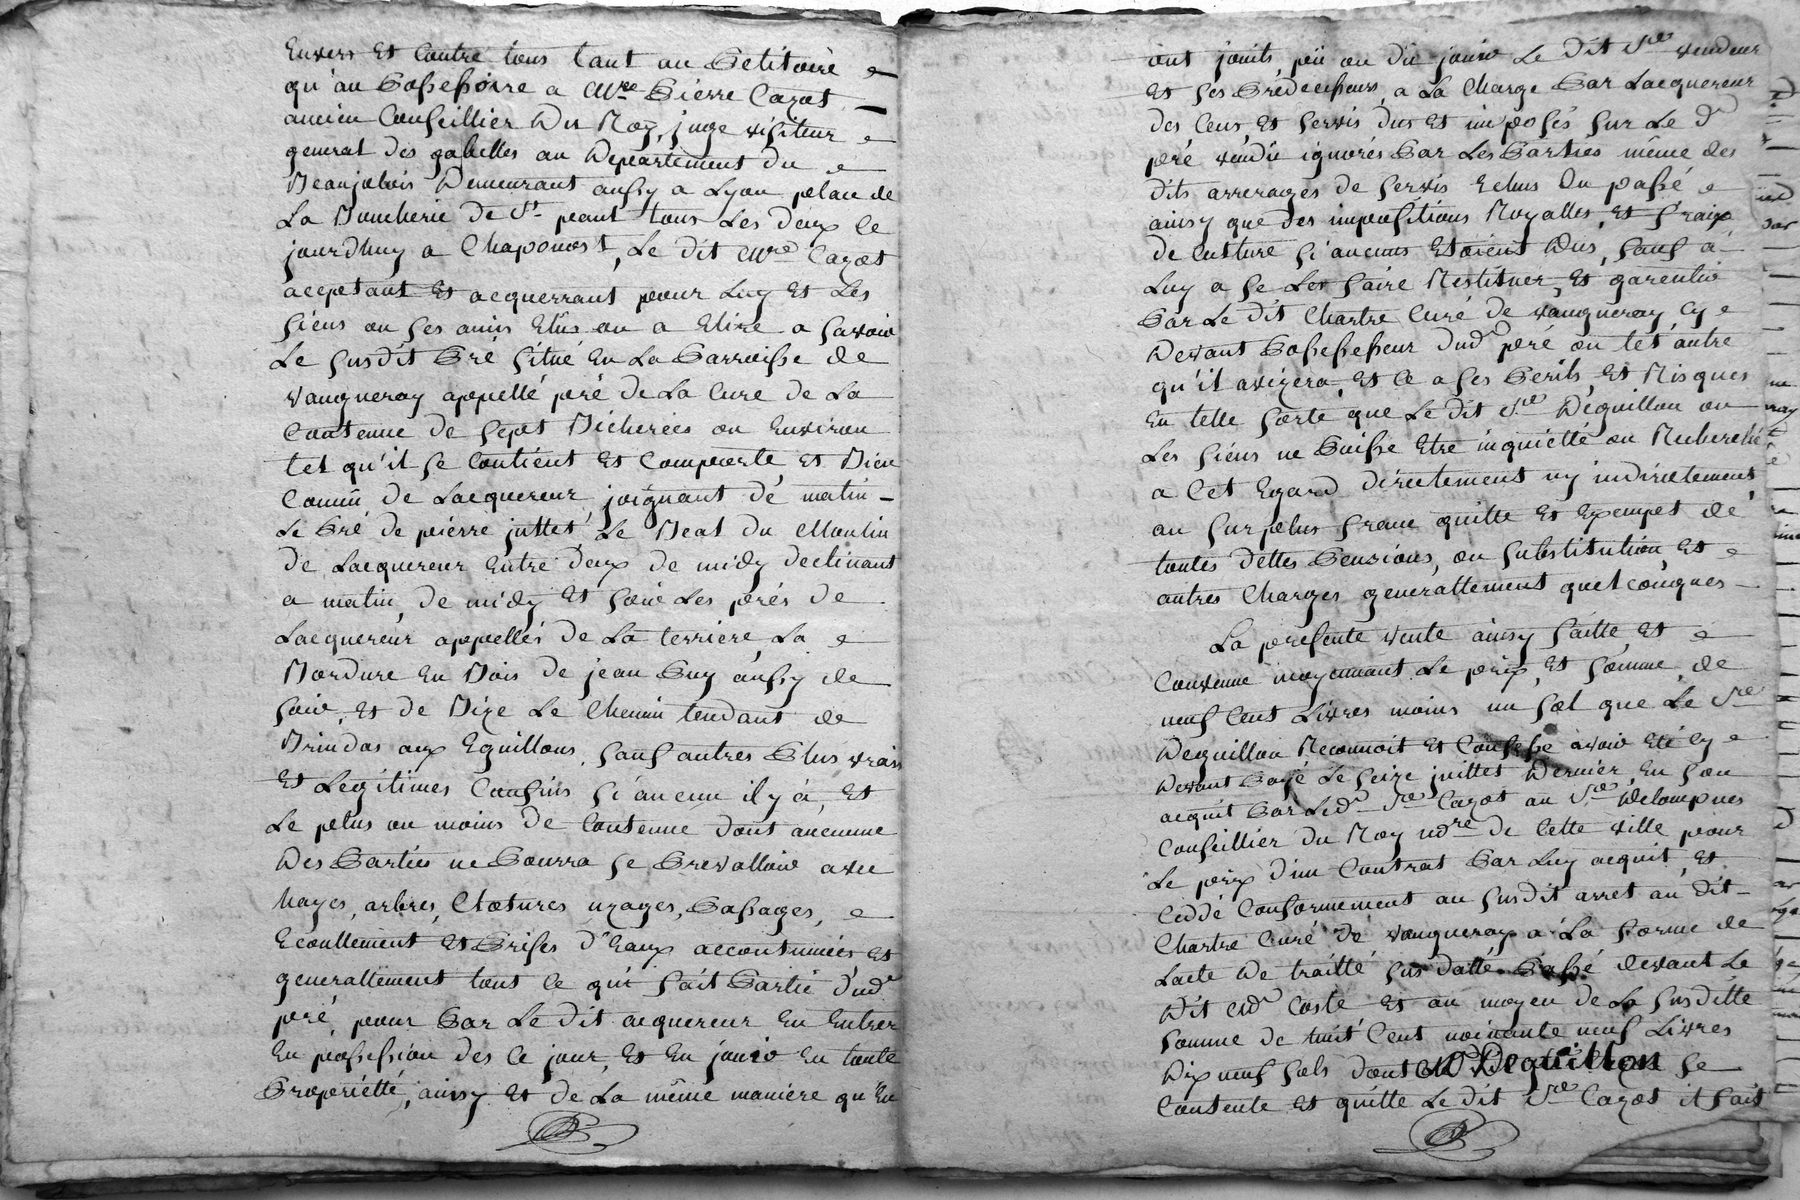 Envers Et Contre tous tant au Petitoire
qu'au Possessoire a Mre Pierre Cazot
ancien Conseillier Du Roy, juge visiteur
general des gabelles au Departement du
Beaujolois Demeurant aussy a Lyon place de
La Boucherie de St. paul tous Les deux ce
jourdhuy a Chaponost, Le dit Mre Cazot
acceptant Et acquerrant pour Luy Et Les
siens ou ses amis Elûs ou a Elire a savoir
Le susdit Pré situé En La Parroisse de
vaugneray appellé pré de La Cure de La
Contenue de sept Bicherées ou Environ
tel qu'il se Contient Et Comporte Et Bien
Connû de Lacquereur, joignant de matin
Le Pré de pierre juttet, Le Beal du Moulin
de Lacquereur Entre deux de midy declinant
a matin, de midy Et soir Les prés de
Lacquereur appellés de La terriere, La
Bordure En Bois de jean Guy aussy de
soir, Et de Bize Le Chemin tendant de
Brindas aux Eguillons, sauf autres Plus vrais
Et Legitimes Confins si aucun il y a, Et
Le plus ou moins de Contenue dont aucune
Des Parties ne Pourra se Prevalloir avec
hayes, arbres, Clotures, uzages, Passages,
Ecoullement Et Prises d'Eaux accoutumées Et
generallement tout ce qui fait Partie dud.
pré, pour Par Le dit acquereur En Entrer
En possession des Ce jour, Et En jouir En toute
Proprietté, ainsy Et de La même maniere qu'En
ont jouit, pû ou dû jouir Le dit Sre vendeur
Et ses Predecesseurs, a La Charge Par Lacquereur
des Cens, Et servis dus Et imposés sur Le d
pré vendû ignorés Par Les Parties même des
dits arrerages de servis Echus Du passé
ainsy que des impositions Royalles, Et fraix
de Culture si aucuns Etoient Dûs, sauf a
Luy a se Les faire Restituer, Et garentir
Par Le dit Chartre Curé de vaugneray Cy
Devant Possesseur dud pré ou tel autre
qu'il avizera, Et Ce a ses Perils, Et Risques
En telle sorte que Le dit Sre Deguillon ou
Les siens ne Puisse Etre inquietté ou Recherché
a Cet Egard directement ny indirectement
au surplus franc quitte Et Exempt de
toutes dettes Pensions, ou substitution Et
autres Charges generallement quelconques
La presente vente ainsy faitte, Et
Convenue moyennant Le prix, Et somme de
neuf Cent Livres moins un sol que Le Sre
Deguillon Reconnoit Et Confesse avoir Eté Cy
Devant Payé Le seize juillet Dernier En son
acquit Par Led. Sre Cazot au Sre Delompnes
Conseillier du Roy ndre de Cette ville pour
Le prix d'un Contrat Par Luy acquit, Et
Ceddé Conformement au susdit arret au dit
Chartre Curé de vaugneray a La forme de
Lacte De traitté sus datté Passé devant Le
Dit Md Coste Et au moyen de La susditte
somme de huit Cent noinante neuf Livres
Dix neuf sols dont Md Deguillon se
Contente Et quitte Le dit Sre Cazot il fait